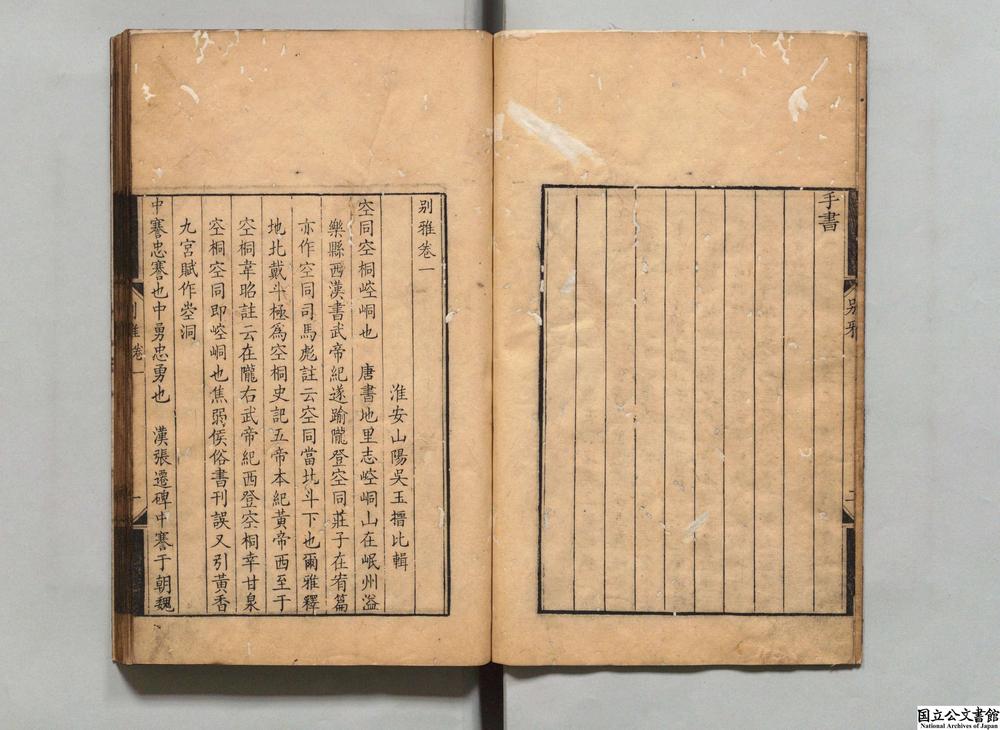 手書
别雅
二
别雅卷一
淮安山陽吳玉搢比輯
空同空桐崆峒也　唐書地里志崆峒山在岷州溢
樂縣西漢書武帝紀遂踰隴登空同莊子在宥篇
亦作空同司馬彪註云空同當北斗下也爾雅釋
地北戴斗極爲空桐史記五帝本紀黃帝西至于
空桐韋昭註云在隴右武帝紀西登空桐幸甘泉
空桐空同即崆峒也焦弱侯俗書刊誤又引黃香
九宮賦作崆洞
中謇忠謇也中勇忠勇也　漢張遷碑中謇于朝魏
别雅卷一
一
国立公文書館
National Archives of Japan